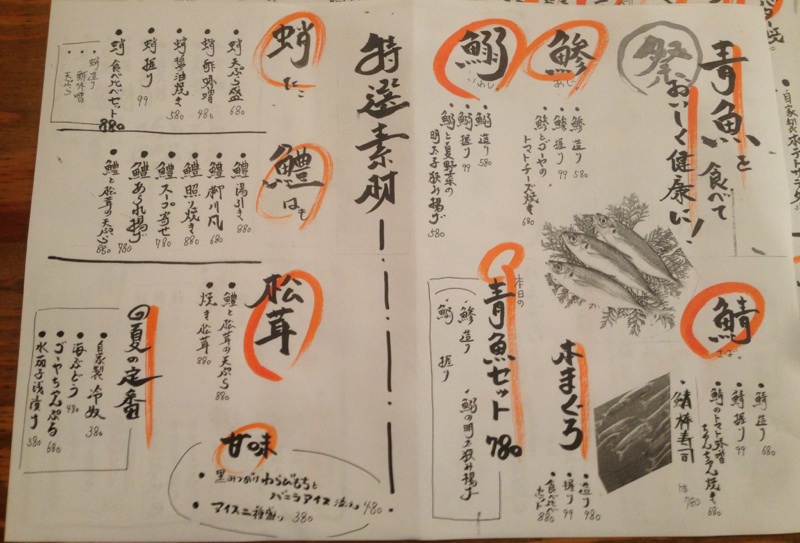 青魚を食べて
おいしく健康に!
祭
鯵
あじ
・鯵 造り 580
・鯵 握り 99
・鯵とゴーヤの
トマトチーズ焼き 680
鰯
いわし
・鰯 造り 580
・鰯 握り 99
・鰯と夏野菜の
明太子挟み揚げ 580
鯖
さば
・鯖 造り 680
・鯖 握り 99
・鯖のトマト味噌
ちゃんちゃん焼き 680
・鯖棒寿司
780
本まぐろ
・造り 980
・握り 99
・食べ比べ
セット 880
本日の
青魚セット 780
・鯵 造り
・鰯 握り
・鰯の明太挟み揚げ
特選素材
蛸
たこ
・蛸 天ぷら盛 680
・蛸 酢味噌 480
・蛸 醤油焼き 580
・蛸 握り 99
・蛸 食べ比べセット 880
・蛸 造り
・酢味噌
・天ぷら
鱧
はも
・鱧 湯引き 880
・鱧 柳川風 680
・鱧 照り焼き 880
・鱧 スープ寄せ 780
・鱧 あられ揚げ 780
・鱧と松茸の天ぷら 880
松茸
・鱧と松茸の天ぷら 880
・焼き松茸 880
夏の定番
・自家製 冷奴 380
・海ぶどう 480
・ゴーヤちゃんぷる 680
・水茄子浅漬け 380
甘味
・黒みつがけわらびもちと
バニラアイス 480
・アイス二種盛り 380